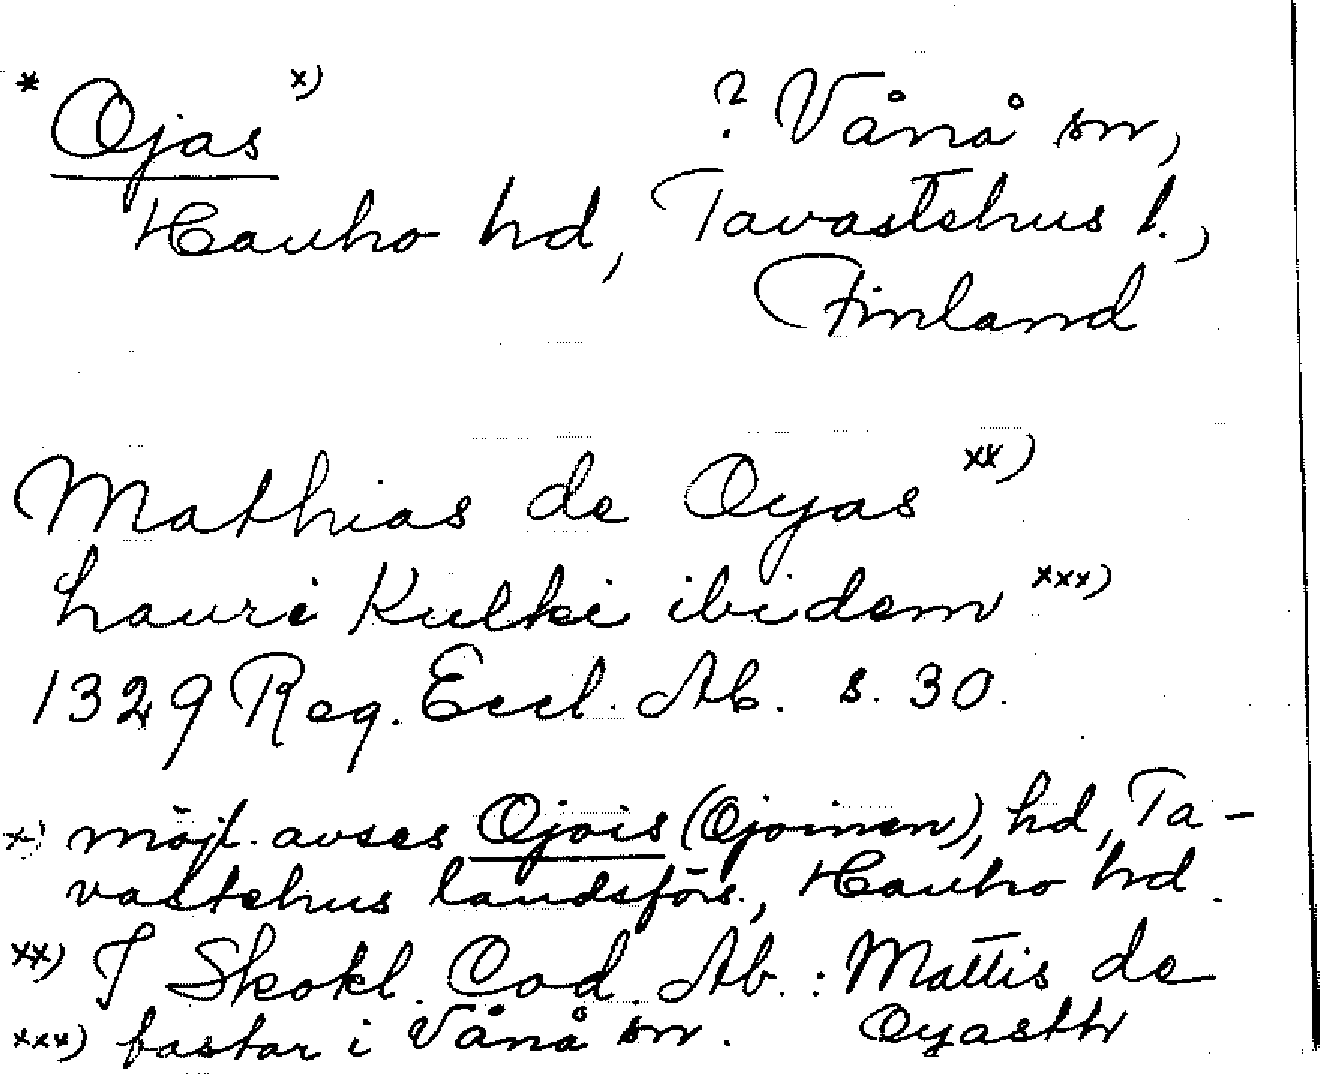 * Ojas x) ? Vånå sn,
Hauho hd, Tavastehus l.,
Finland
Mathias de Oyas xx)
hauri Kulki ibidem xxx)
1329 Reg. Eccl. Ab. s. 30.
x) möjl. avses Ojois (Ojoinen), hd, Ta-
vastehus landsförs., Hauho hd.
xx) I Skokl. Cod. Ab. : Mattis de
Oyasth
xxx) fastar i Vånå sn.